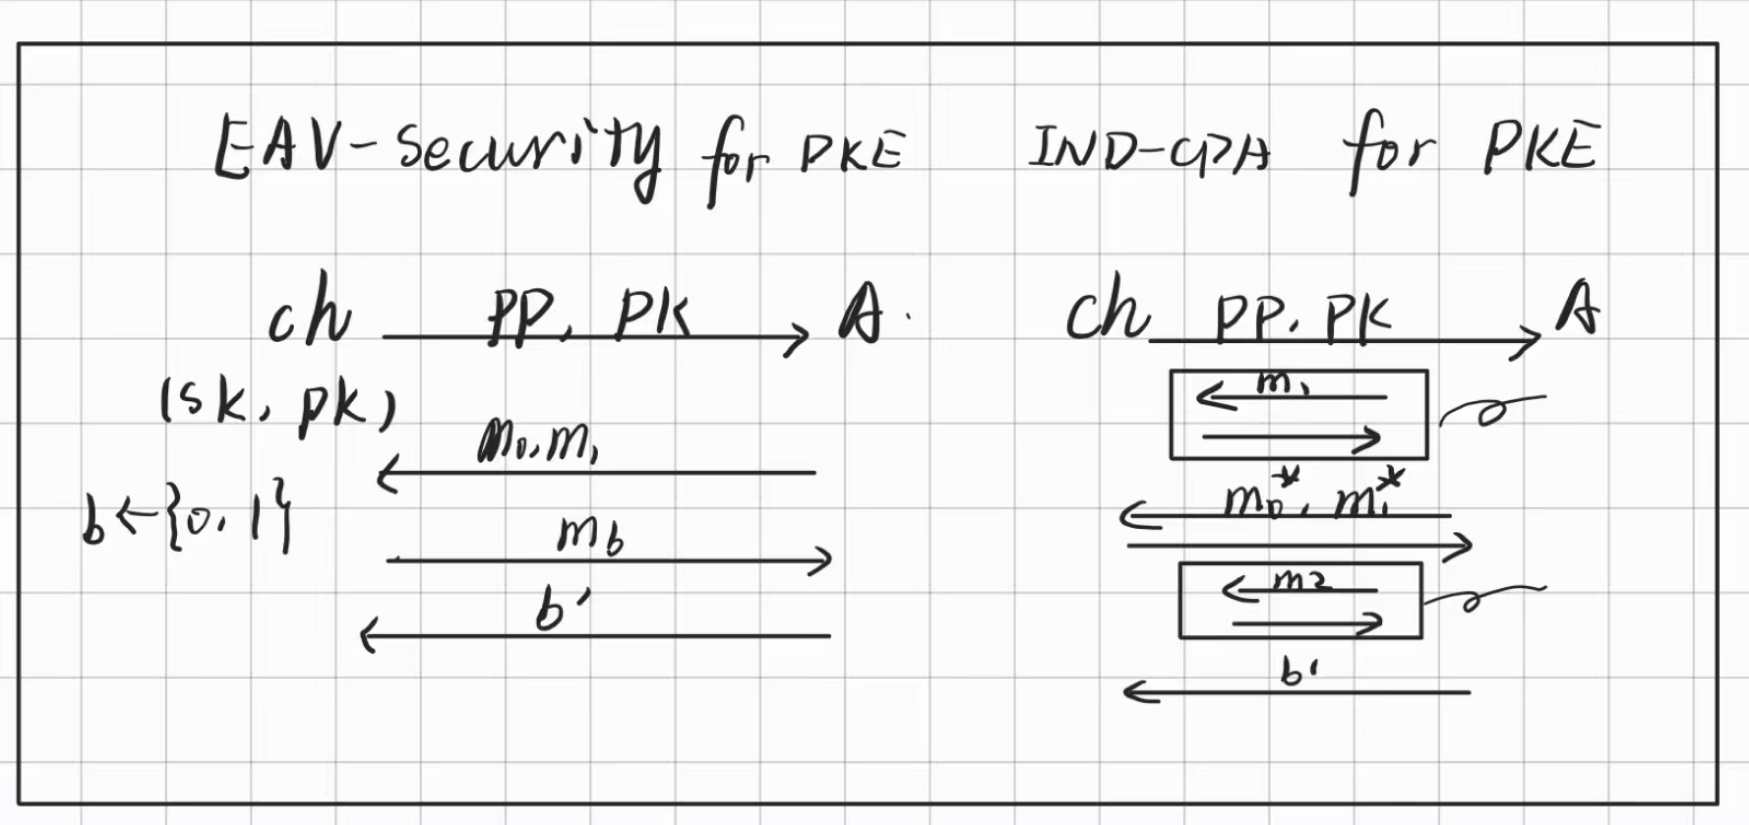 EAV-Security for PKE
ch PP, PK A.
(sk, pk)
m₀, m₁
b ← {0, 1}
m_b
b'
IND-CPA for PKE
ch PP, PK A
m₁
m₀*, m₁*
m2
b'